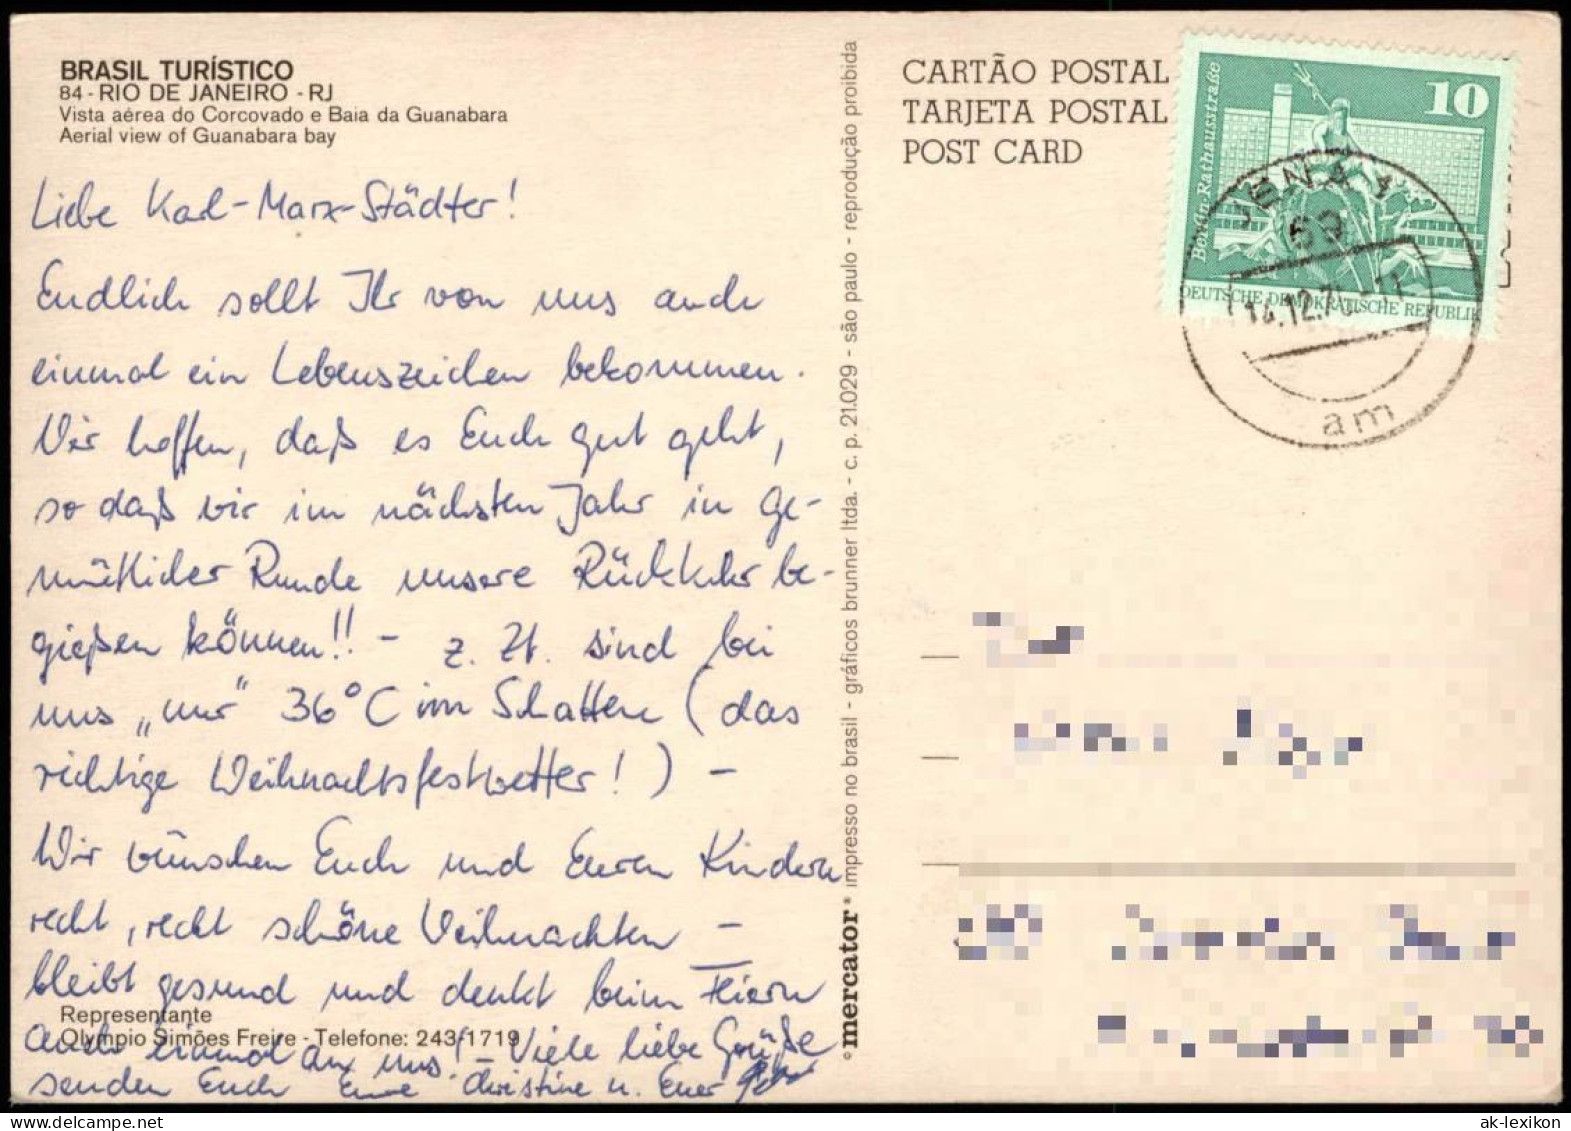 BRASIL TURÍSTICO
84 - RIO DE JANEIRO - RJ
Vista aérea do Corcovado e Baia da Guanabara
Aerial view of Guanabara bay
Liebe Karl-Marx-Städter!
Endlich sollt Ihr von uns auch
einmal ein Lebenszeichen bekommen.
Wir hoffen, daß es Euch gut geht,
so daß wir im nächsten Jahr in ge-
mütlicher Runde unsere Rückkehr be-
gießen können!! - z. Zt. sind bei
uns „nur" 36°C im Schatten (das
richtige Weihnachtsfestwetter!) -
Wir wünschen Euch und Euren Kindern
recht, recht schöne Weihnachten -
bleibt gesund und denkt beim Feiern
auch einmal an uns! - Viele liebe Grüße
senden Euch Eure Christine u. Euer
Representante
Olympio Simões Freire - Telefone: 243-1719
mercator impresso no brasil - gráficos brunner ltda. - c. p. 21.029 - são paulo - reprodução proibida
CARTÃO POSTAL
TARJETA POSTAL
POST CARD
10
Berlin, Rathausstraße
DEUTSCHE DEMOKRATISCHE REPUBLIK
JENA 1
69
14.12.7
am
ak-lexikon